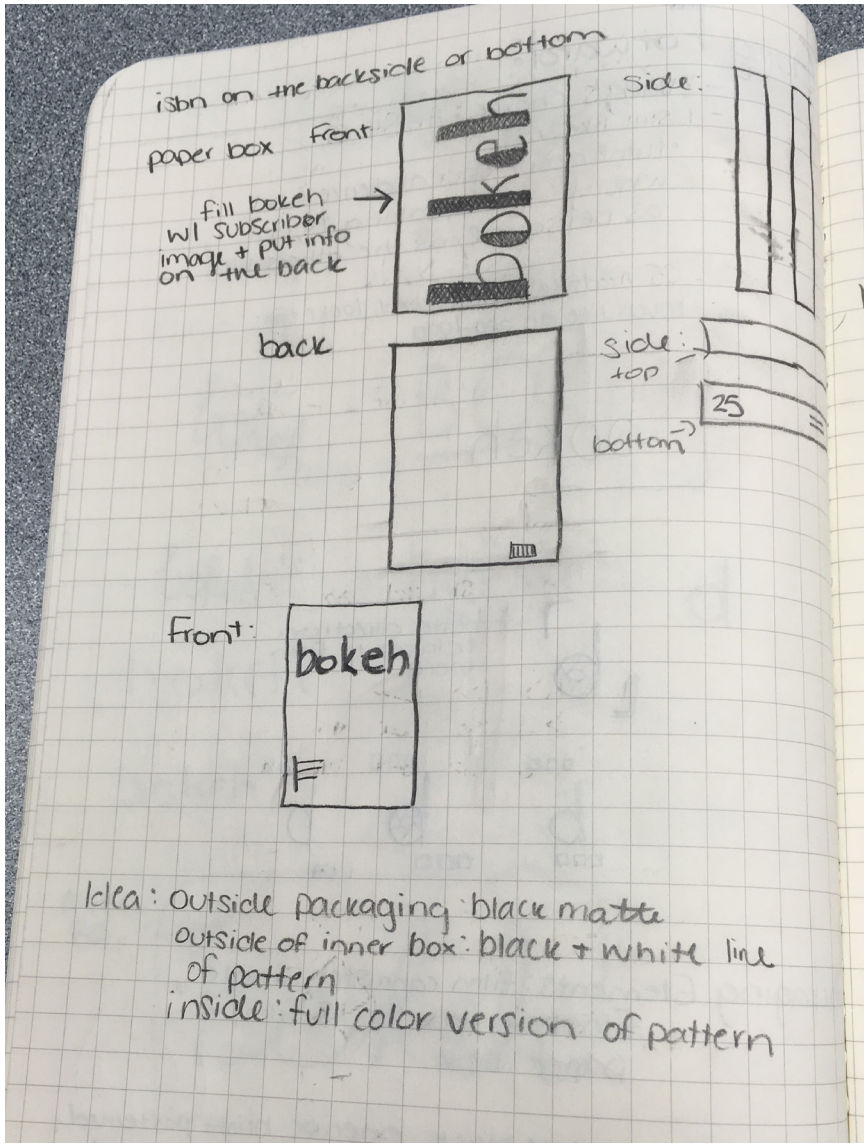 isbn on the backside or bottom
side:
paper box front
bokeh
fill bokeh
w/ subscriber
image + put info
on the back
back
side:
top
25
bottom
Front:
bokeh
Idea: outside packaging: black matte
outside of inner box: black + white line
of pattern
inside: full color version of pattern